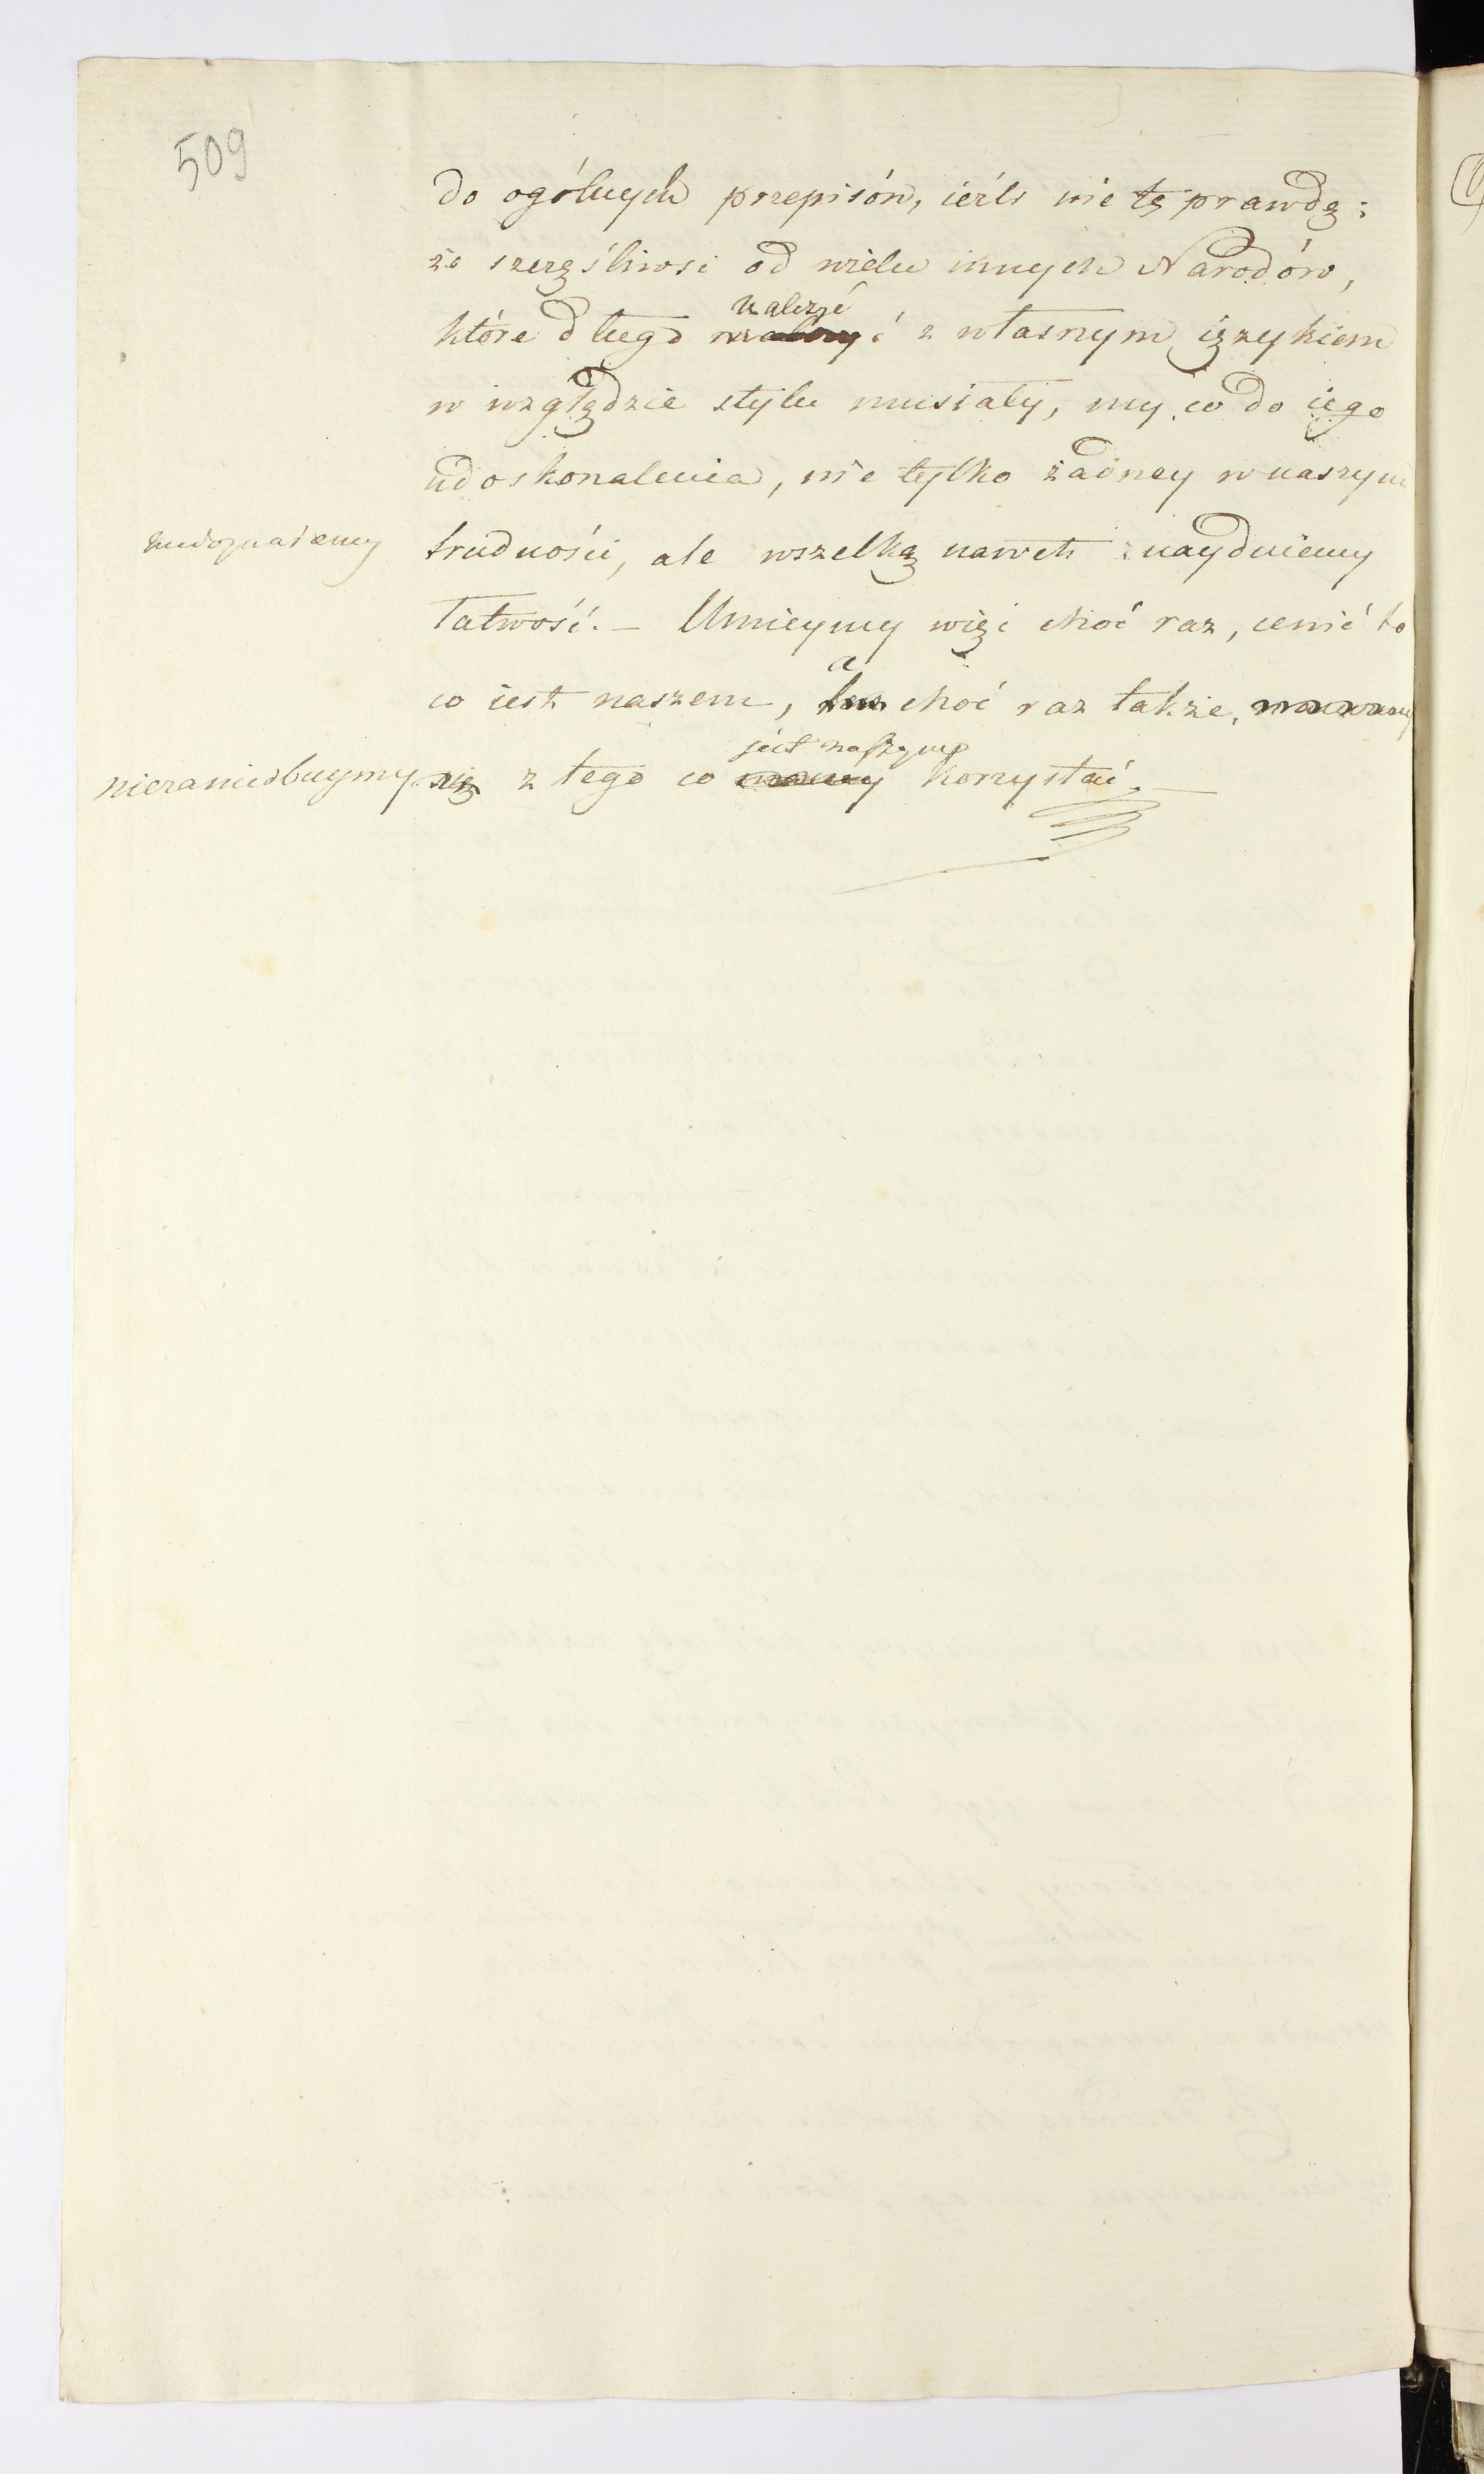 509
do ogólnych przepisów, ieźli nie tę prawdę:
że szczęśliwsi od wielu innych Narodów,
walczyć
które długo z własnym ięzykiem
w względzie stylu musiały, my co do iego
udoskonalenia, nie tylko żadney w naszym
niedoznaiemy
trudności, ale wszelką nawet znayduiemy
łatwość. – Umieymy więc choć raz, cenić to
a
co iest naszem, choć raz także,
jest naszym
niezaniedbuymy się z tego co korzystać. –